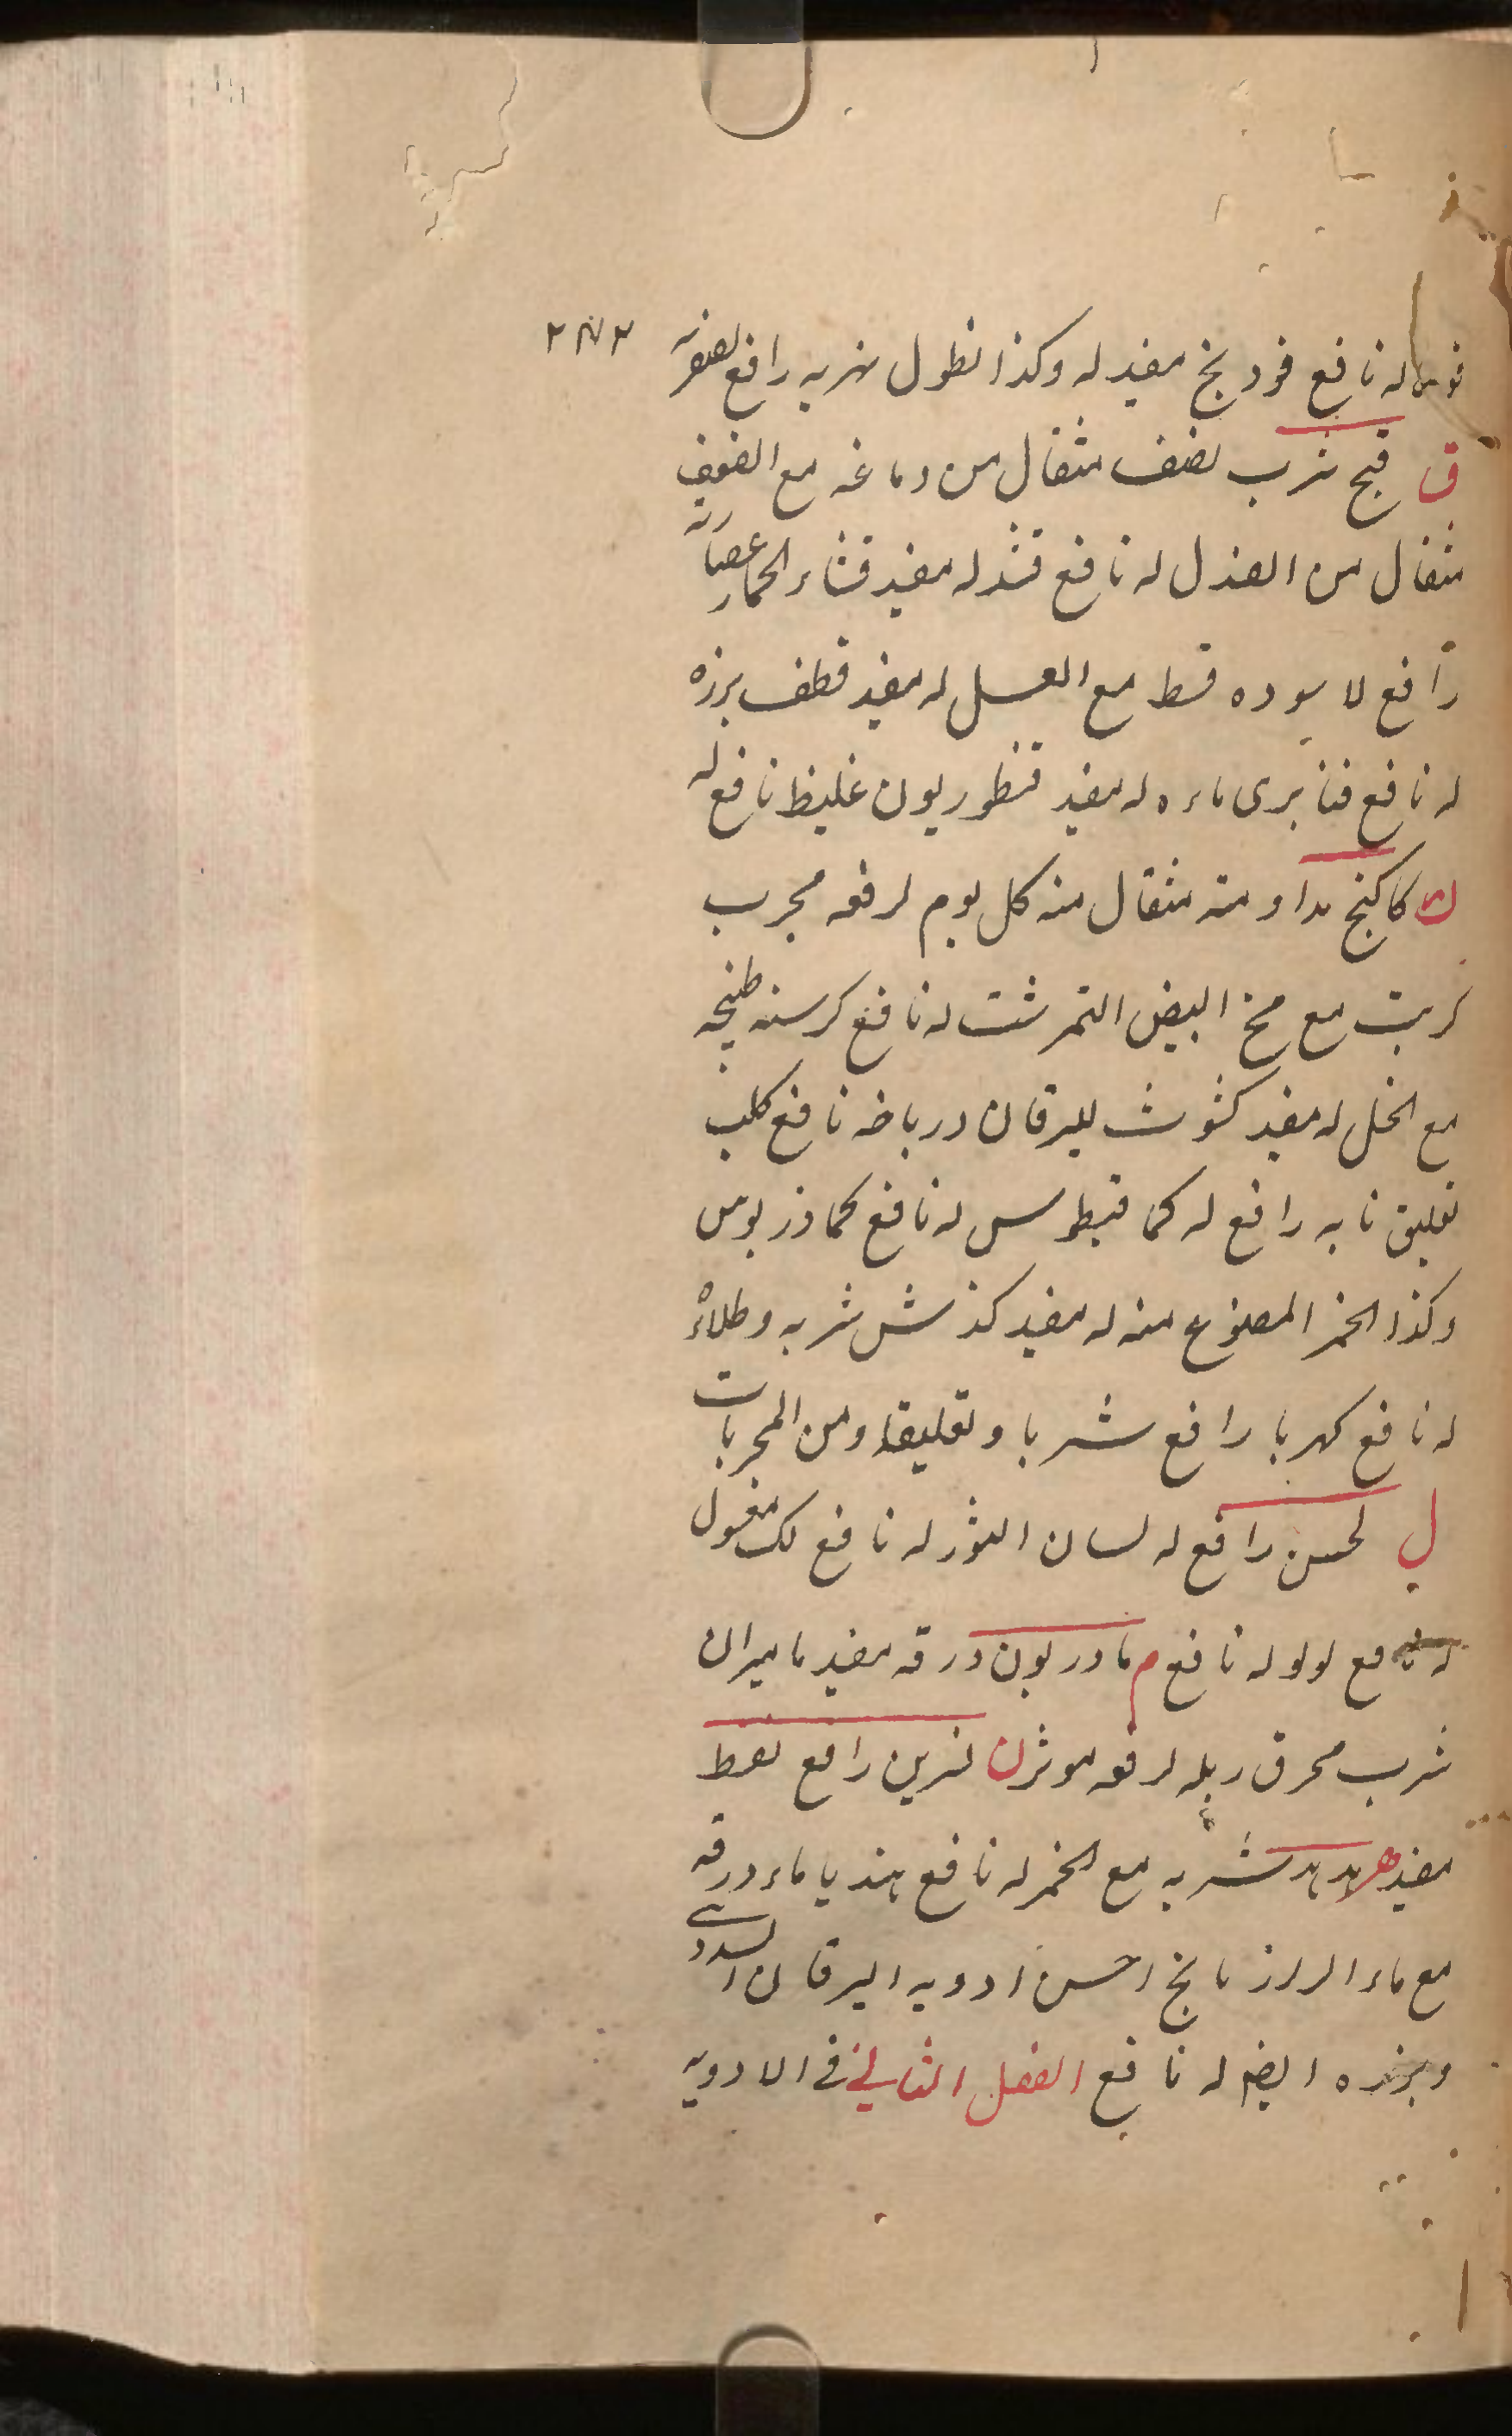 له نافع فودنج مفيد له وكذا نطول شربه رافع لصفرته
ق قبج شرب نصف مثقال من دماغه مع
مثقال من الصندل له نافع قند له مفيد قثاء الحمار عصارته
رافع لا سوده قسط مع العسل له مفيد قطف بزره
له نافع قنابرى ماءه له مفيد قنطوريون غليظ نافع له
ك كاكنج مداومته مثقال منه كل يوم لرفعه مجرب
كبريت مع مخ البيض النمرشت له نافع كرسنه طبخه
مع الخل له مفيد كشوث لليرقان درباضه نافع كلب
تعليق نابه رافع له كمافيطوس له نافع كمادريوس
وكذا الخمر المصنوع منه له مفيد كندش شربه وطلاءً
له نافع كهربا رافع شربا وتعليقا ومن المجربات
ل لحسن رافع له لسان الثور له نافع لك مغسول
له نافع لولو له نافع م مادريون ورقه مفيد ماميران
شرب محرق ربله لرفعه موثر ن نسرين رافع نفط
مفيد ه هدهد شربه مع الخمر له نافع هنديا ماء ورقه
مع ماء الرازيانج احسن ادويه اليرقان السددى
وبزره ايضا له نافع الفصل الثانى فى الادويه